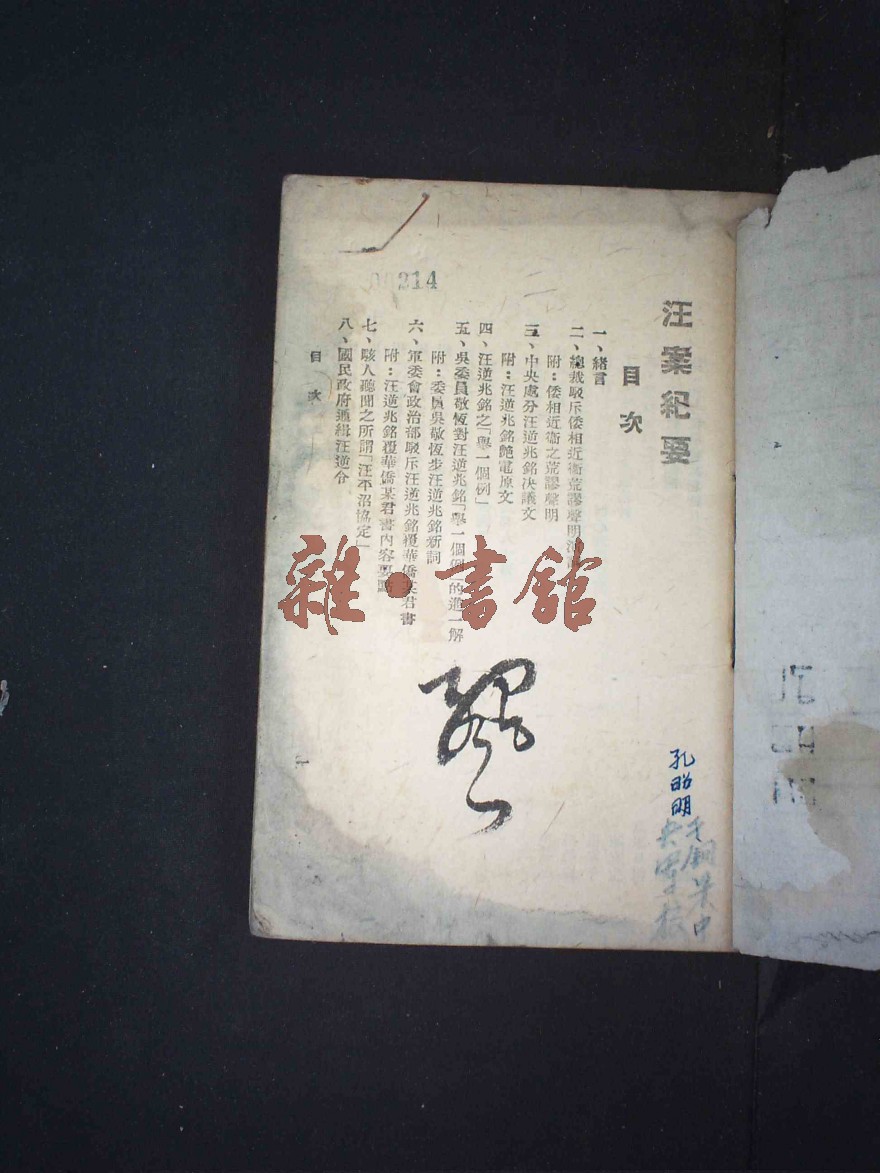 汪案紀要
目次
一、緒言
二、總裁駁斥倭相近衞荒謬聲明
附：倭相近衞之荒謬聲明
三、中央處分汪逆兆銘決議文
附：汪逆兆銘艷電原文
四、汪逆兆銘之「舉一個例」
五、吳委員敬恆對汪逆兆銘「舉一個例」的進一解
附：委員吳敬恆步汪逆兆銘新詞
六、軍委會政治部駁斥汪逆兆銘覆華僑某君書
附：汪逆兆銘覆華僑某君書內容要點
七、駭人聽聞之所謂「汪平沼協定」
八、國民政府通緝汪逆令
目次
一
214
雜·書館
孔昭明